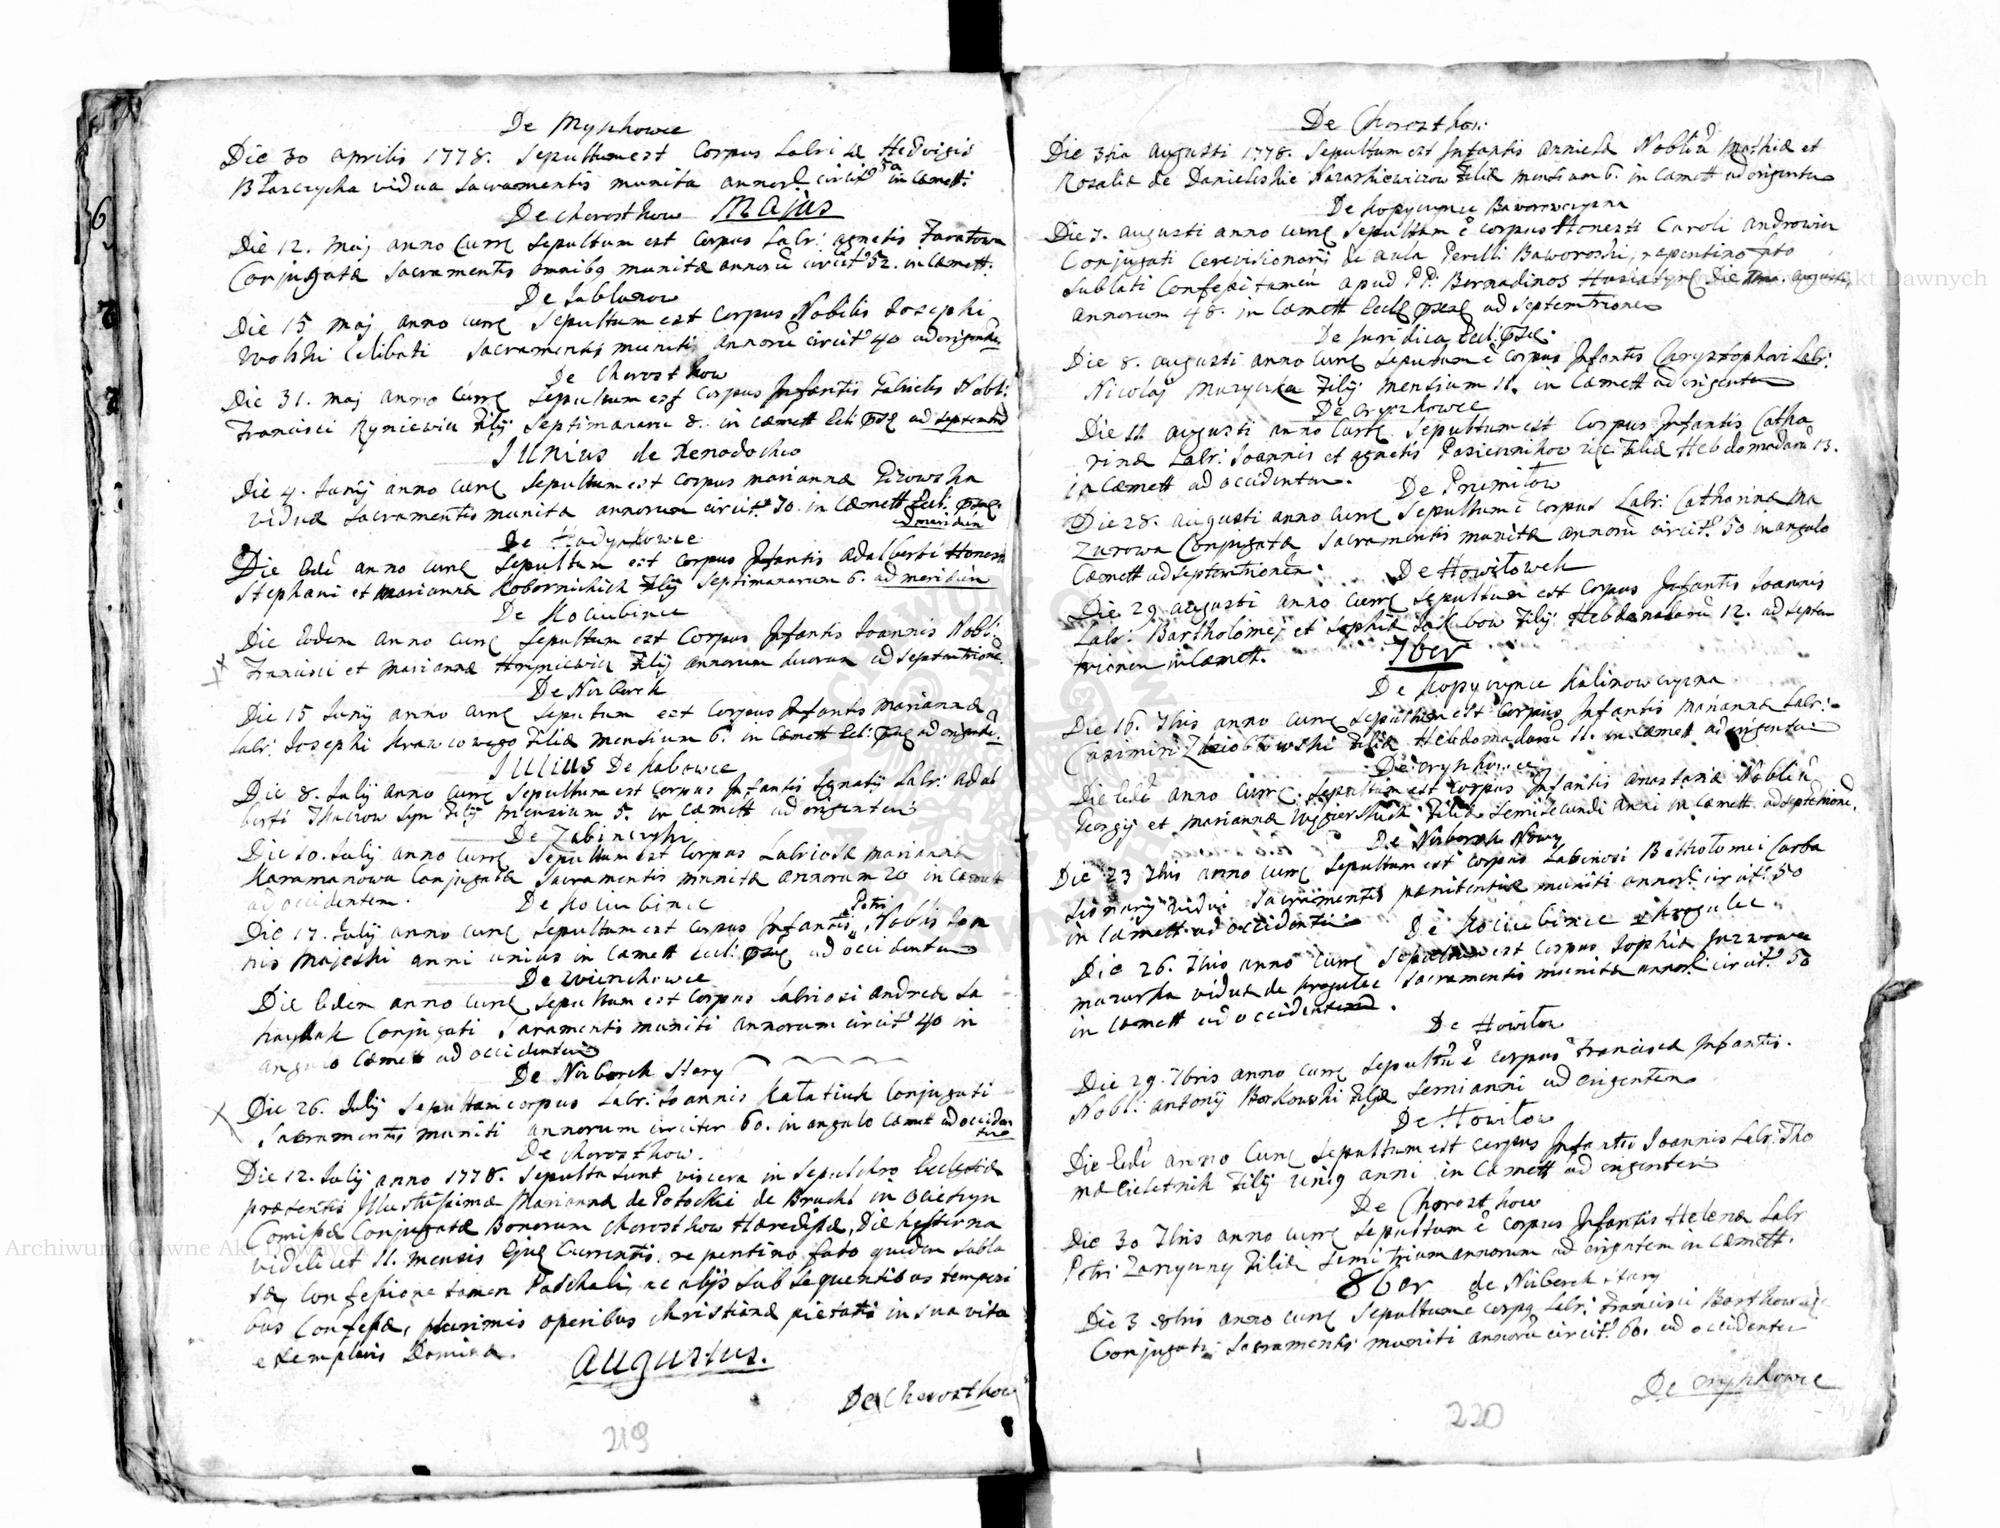 De Myszkowce
Die 30 aprilis 1778. Sepultum est Corpus Labri sæ Hedvigis
Błaszczycka vidua Sacramentis munita annorũ circitr 50 in Cæmett:
De Chorostkow Majus
Die 12. Maij anno Curre Sepultum est Corpus Labr: agnetis Faratowa
Conjugatæ Sacramentis omnibq munitæ annorũ circitr 52. in Cæmett:
De Jablonow
Die 15 Maij anno curre Sepultum est Corpus Nobilis Josephi
Wolski Celibati Sacramentis muniti annorũ circitr 40 ad orientem
De Chorostkow
Die 31. Maij anno Curre Sepultum est Corpus Infantis Gabrielis Nobli:
Francisci Ryniewicz Filij Septimanarum 8. in Cæmett Ecli: ad septemtri
Junius de Xenodochio
Die 4. Junij anno curre Sepultum est Corpus Mariannæ Gizowska
viduæ Sacramentis munitæ annorum circitr 70. in Cæmett Ecli:
ad meridiem
De Hadynkowce
Die Eadẽ anno curre Sepultum est Corpus Infantis adalberti Honesti
Stephani et Mariannæ Kobernickich Filij Septimanarum 6. ad meridiem
De Kociubince
Die Eadem anno curre Sepultum est Corpus Infantis Joannis Nobli:
Francisci et Mariannæ Hryniewicz Filij annorum duorum ad Septentrionẽ
De Niżborek
Die 15 Junij anno curre Sepultum est Corpus Infantis Mariannæ
Labr: Josephi Krawcowego Filiæ Mensium 6. in Cæmett Ecl: ad orientẽ
Julius De Rakowce
Die 8. Julij anno Curre Sepultum est Corpus Infantis Ignatij Labr: adal
berti Tkaczow Syn Filij mensium 5. in Cæmett ad orientem
De Zabinczyki
Die 10. Julij anno Curre Sepultum est Corpus Labriosæ Mariannæ
Karamanowa Conjugatæ Sacramentis munitæ annorum 20 in Cæmett
ad occidentem. De Kociubince
Die 17. Julij anno curre Sepultum est Corpus Infantis Petri Noblis Joan
nis Majeski anni unius in Cæmett Eccl: ad occidentem
De Wienckowce
Die Eadem anno curre Sepultum est Corpus Labriosi Andreæ Sa
haydak Conjugati Sacramentis muniti annorum circitr 40 in
angulo Cæmett ad occidentem
De Niżborek Stary
Die 26. Julij Sepultum corpus Labr: Joannis Kałatiuk Conjugati
Sacramentis muniti annorum circiter 60. in angulo Cæmet ad occiden
tem
De Chorostkow.
Die 12. Julij anno 1778. Sepulta sunt viscera in Sepulchro Ecclesiæ
præsentis Illustrissimæ Mariannæ de Potockie de Bruchl in
Comitissæ Conjugatæ Bonorum Chorostkow Hæredissæ, Die hesterna
videlicet 11. mensis Ejus Currentis repentino fato quidem subla
tæ, Confessione tamen Paschali, ac alijs Subsequentibus tempori
bus Confessæ, plurimis operibus Christianæ pietatis in sua vita
exemplaris Dominæ.
Augustus.
De Chorostkow
219
De Chorostkow:
Die 3tia augusti 1778. Sepultum est Infantis Annielæ Nobliũ Mathiæ et
Rosaliæ de Danieleskie Nazarkiewiczow Filiæ mensium 6. in Cæmett ad orientem
De Kopyczynce Baworowczyzna
Die 7. augusti anno curre Sepultum ẽ corpus Honesti Caroli Androwicz
Conjugati Cerevisionarij de aula Perilli Baworoski, repentino fato
Sublati Confessi tamen apud P P. Bernadinos Husiatynẽ Die augusti
annorum 48. in Cæmett Eccle ad Septemtrionem
De Juridica Ecli:
Die 8. augusti anno curre Sepultum ẽ corpus Infantis Chrysztophori Labr:
Nicolaij Muzycka Filij Mensium 11. in Cæmett ad orientem
De Oryszkowce
Die 11 augusti anno Curre Sepultum est Corpus Infantis Catha
rinæ Labr: Joannis et agnetis Pasiecznikow Filiæ Hebdomadarũ 13.
in Cæmett ad occidentem. De Peremiłow
Die 28. augusti anno curre Sepultum ẽ corpus Labr: Catharinæ Ma
zurowa Conjugatæ Sacramentis munitæ annorũ circitr 50 in angulo
Cæmett ad Septentrionem. De Howiłowek
Die 29 augusti anno curre Sepultum est Corpus Infantis Joannis
Labr: Bartholomej et Sophiæ Filij Hebdomadarũ 12. ad Septen
trionem in Cæmett.
7ber
De Kopyczynce Kalinowczyzna
Die 16. 7bris anno curre Sepultum est Corpus Infantis Mariannæ Labr:
Casimiri Dzioblowski Filiæ Hebdomadarũ 11. in Cæmett ad orientem
De Oryszkowce
Die Eadẽ anno curre. Sepultum est corpus Infantis anastasiæ Nobliũ
Georgij et Mariannæ Węgierskich Filiæ Semisecundi anni in Cæmett ad septentrionẽ.
De Niżborek Nowy
Die 23 7bris anno curre Sepultum est corpus Labriosi Bartholomei Carba
sionarij vidui Sacramentis pænitentiæ muniti annorũ circitr 50
in Cæmett ad occidentem De Kociubince Krogulec
Die 26. 7bris anno curre Sepultum est Corpus Sophiæ Juzwowa
mazurka viduæ de Krogulec Sacramentis munitæ annorũ circitr 50
in Cæmett ad occidentem.
De Howiłow
Die 29. 7bris anno curre Sepultũ ẽ corpus Franciscæ Infantis.
Nobl: Antonij Borkowski Filiæ Semianni ad orientem
De Howiłow
Die Eadẽ anno Curre Sepultum est Corpus Infantis Joannis Labr: Tho
mæ Cieletnik Filij unius anni in Cæmett ad orientem
De Chorostkow
Die 30 7bris anno curre Sepultum ẽ Corpus Infantis Helenæ Labr
Petri Zaryczny Filiæ Semitrium annorum ad orientem in Cæmett.
8ber de Niżborek Stary
Die 3 8bris anno curre Sepultum ẽ corpus Labr: Francisci Bortkow
Conjugati Sacramentis muniti annorũ circitr 60. ad occidentem
De Oryszkowce
220
Archiwum Główne Akt Dawnych